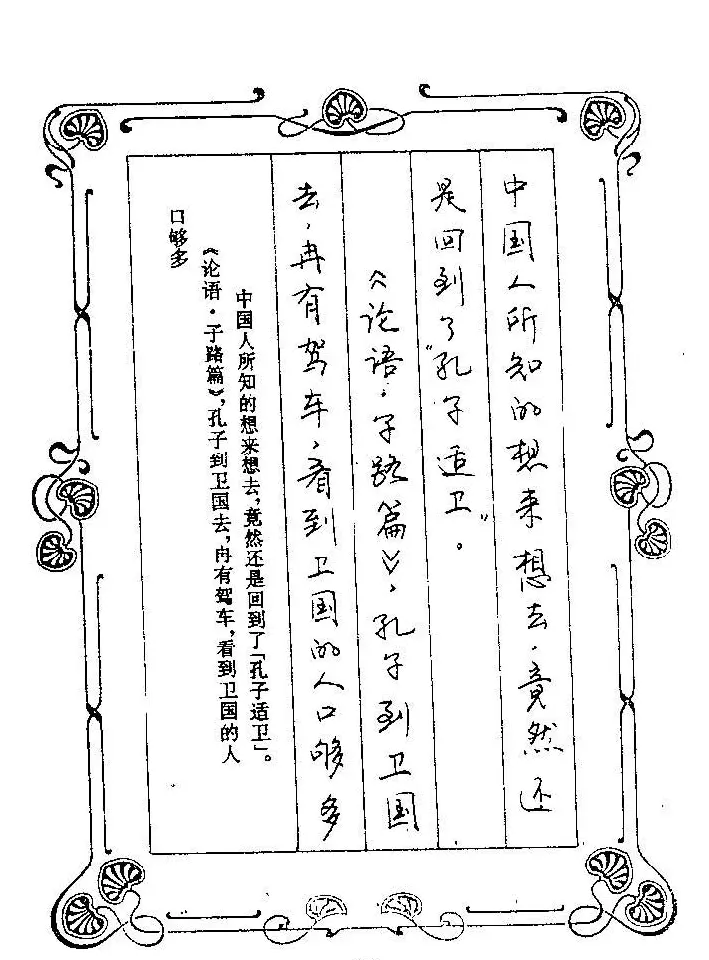 中国人所知的想来想去，竟然还
是回到了“孔子适卫”。
《论语·子路篇》，孔子到卫国
去，冉有驾车，看到卫国的人口够多
中国人所知的想来想去，竟然还是回到了「孔子适卫」。
《论语·子路篇》，孔子到卫国去，冉有驾车，看到卫国的人
口够多